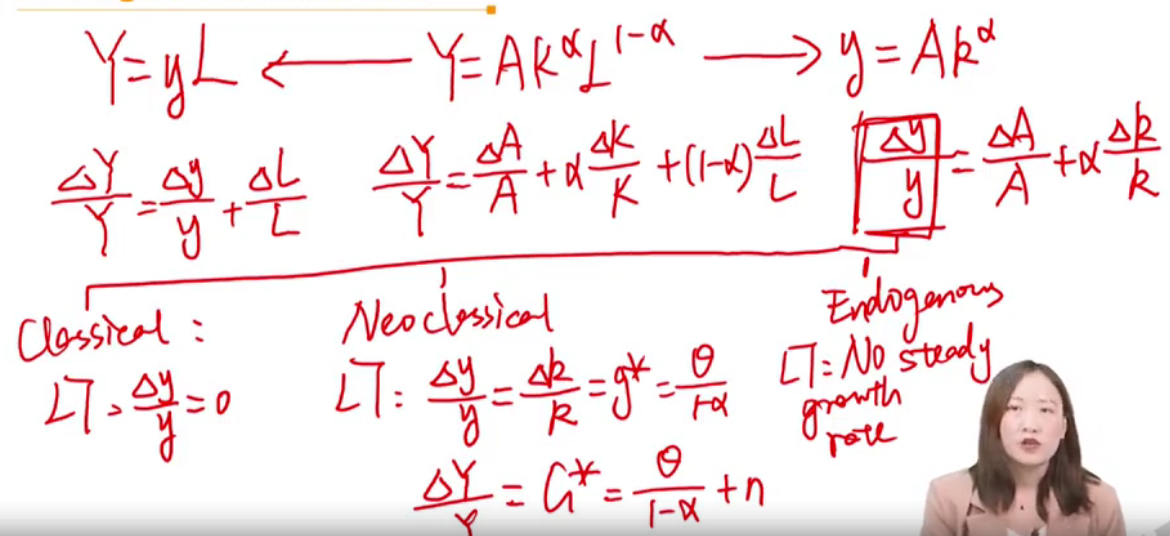 Y=yL ← Y=AK^αL^{1-α} → y=Ak^α
ΔY/Y=Δy/y+ΔL/L
ΔY/Y=ΔA/A+αΔK/K+(1-α)ΔL/L
Δy/y=ΔA/A+αΔk/k
Classical:
LT, Δy/y=0
Neoclassical
LT: Δy/y=Δk/k=g*=θ/1-α
ΔY/Y=G*=θ/1-α+n
Endogenous
LT: No steady
growth
rate